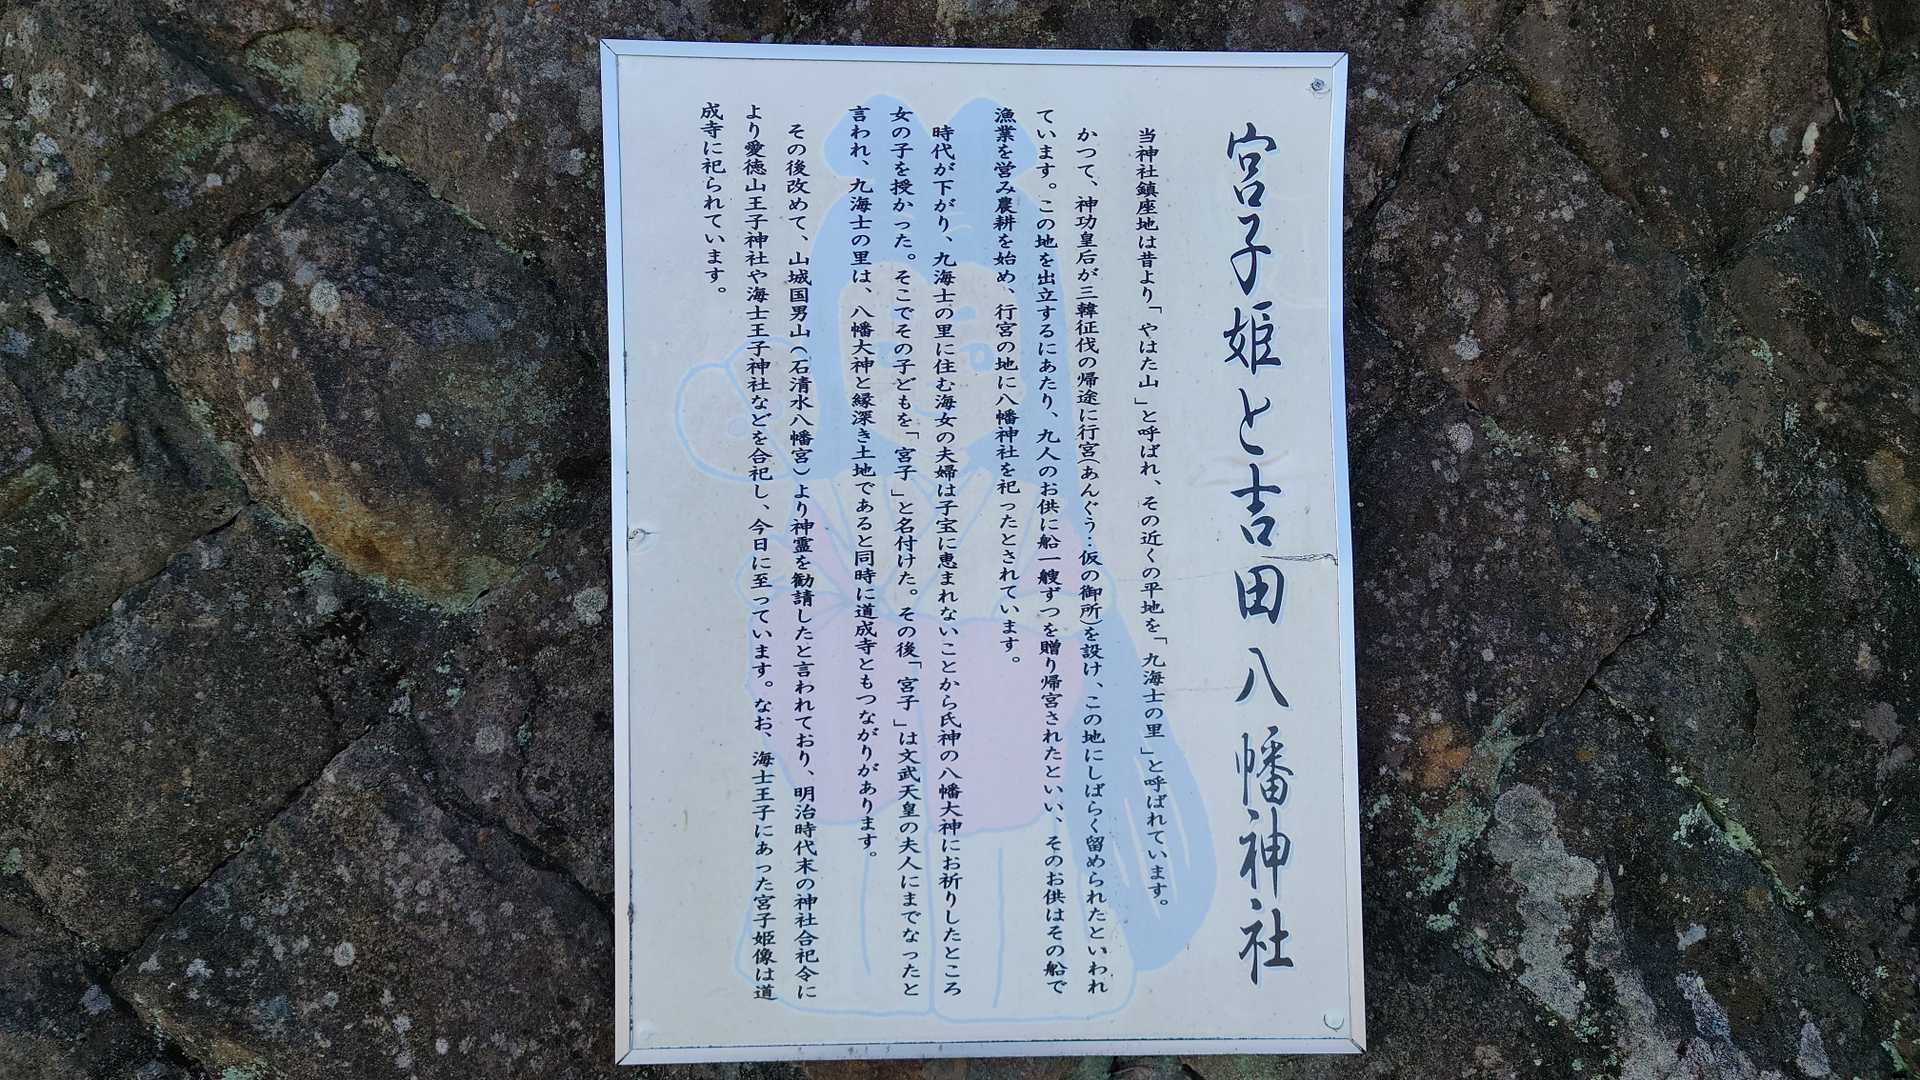 宮子姫と吉田八幡神社
当神社鎮座地は昔より「やはた山」と呼ばれ、その近くの平地を「九海士の里」と呼ばれています。
かつて、神功皇后が三韓征伐の帰途に行宮(あんぐう…仮の御所)を設け、この地にしばらく留められたといわれ
ています。この地を出立するにあたり、九人のお供に船一艘ずつを贈り帰宮されたといい、そのお供はその船で
漁業を営み農耕を始め、行宮の地に八幡神社を祀ったとされています。
時代が下がり、九海士の里に住む海女の夫婦は子宝に恵まれないことから氏神の八幡大神にお祈りしたところ
女の子を授かった。そこでその子どもを「宮子」と名付けた。その後「宮子」は文武天皇の夫人にまでなったと
言われ、九海士の里は、八幡大神と縁深き土地であると同時に道成寺ともつながりがあります。
その後改めて、山城国男山(石清水八幡宮)より神霊を勧請したと言われており、明治時代末の神社合祀令に
より愛徳山王子神社や海士王子神社などを合祀し、今日に至っています。なお、海士王子にあった宮子姫像は道
成寺に祀られています。